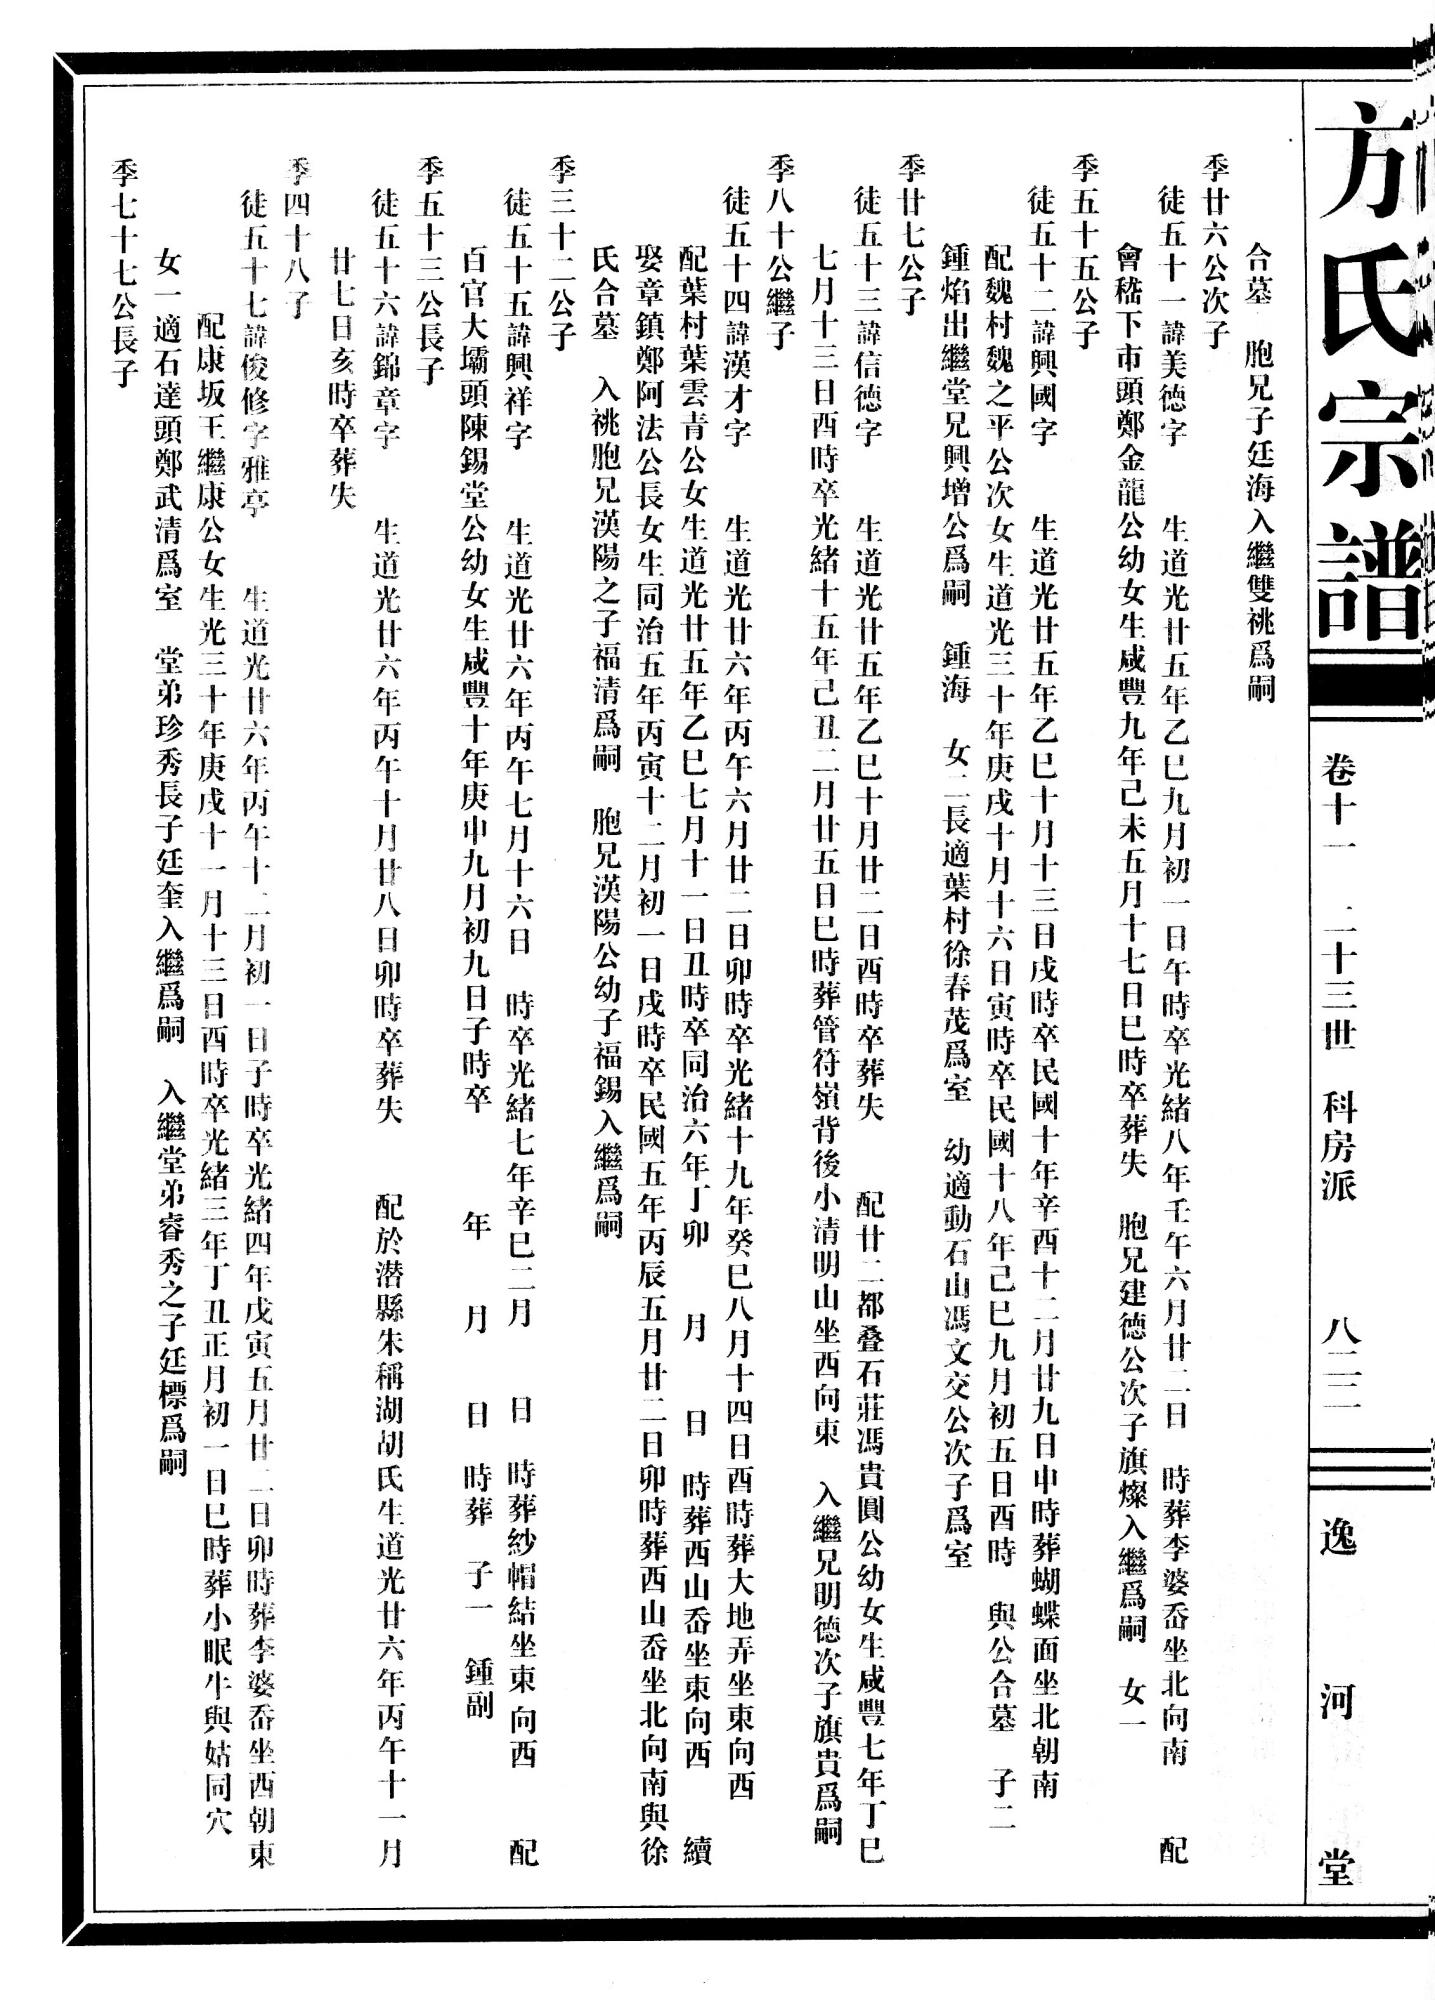 方氏宗譜
卷十一 二十三世 科房派 八二三
逸河堂
合墓 胞兄子廷海入繼雙祧爲嗣
季廿六公次子
徒五十一諱美德字 生道光廿五年乙巳九月初一日午時卒光緒八年壬午六月廿二日 時葬李婆岙坐北向南 配
會嵇下市頭鄭金龍公幼女生咸豐九年己未五月十七日巳時卒葬失 胞兄建德公次子旗燦入繼爲嗣 女一
季五十五公子
徒五十二諱興國字 生道光廿五年乙巳十月十三日戌時卒民國十年辛酉十二月廿九日申時葬蝴蝶面坐北朝南
配魏村魏之平公次女生道光三十年庚戌十月十六日寅時卒民國十八年己巳九月初五日酉時 與公合墓 子二
鍾焰出繼堂兄興增公爲嗣 鍾海 女二長適葉村徐春茂爲室 幼適動石山馮文交公次子爲室
季廿七公子
徒五十三諱信德字 生道光廿五年乙巳十月廿二日酉時卒葬失 配廿二都叠石莊馮貴圓公幼女生咸豐七年丁巳
七月十三日酉時卒光緒十五年己丑二月廿五日巳時葬管符嶺背後小清明山坐西向東 入繼兄明德次子旗貴爲嗣
季八十公繼子
徒五十四諱漢才字 生道光廿六年丙午六月廿二日卯時卒光緒十九年癸巳八月十四日酉時葬大地弄坐東向西
配葉村葉雲青公女生道光廿五年乙巳七月十一日丑時卒同治六年丁卯 月 日 時葬西山岙坐東向西 續
娶章鎮鄭阿法公長女生同治五年丙寅十二月初一日戌時卒民國五年丙辰五月廿二日卯時葬西山岙坐北向南與徐
氏合墓 入祧胞兄漢陽之子福清爲嗣 胞兄漢陽公幼子福錫入繼爲嗣
季三十二公子
徒五十五諱興祥字 生道光廿六年丙午七月十六日 時卒光緒七年辛巳二月 日 時葬紗帽結坐東向西 配
百官大壩頭陳錫堂公幼女生咸豐十年庚申九月初九日子時卒 年 月 日 時葬 子一 鍾副
季五十三公長子
徒五十六諱錦章字 生道光廿六年丙午十月廿八日卯時卒葬失 配於潛縣朱稱湖胡氏生道光廿六年丙午十一月
廿七日亥時卒葬失
季四十八子
徒五十七諱俊修字雅亭 生道光廿六年丙午十二月初一日子時卒光緒四年戊寅五月廿二日卯時葬李婆岙坐西朝東
配康坂王繼康公女生光三十年庚戌十一月十三日酉時卒光緒三年丁丑正月初一日巳時葬小眠牛與姑同穴
女一適石達頭鄭武清爲室 堂弟珍秀長子廷奎入繼爲嗣 入繼堂弟睿秀之子廷標爲嗣
季七十七公長子